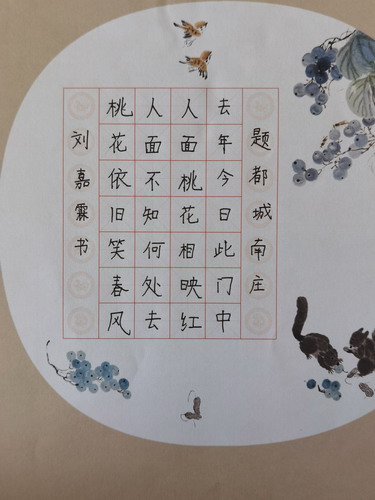 题都城南庄
去年今日此门中
人面桃花相映红
人面不知何处去
桃花依旧笑春风
刘嘉霖书